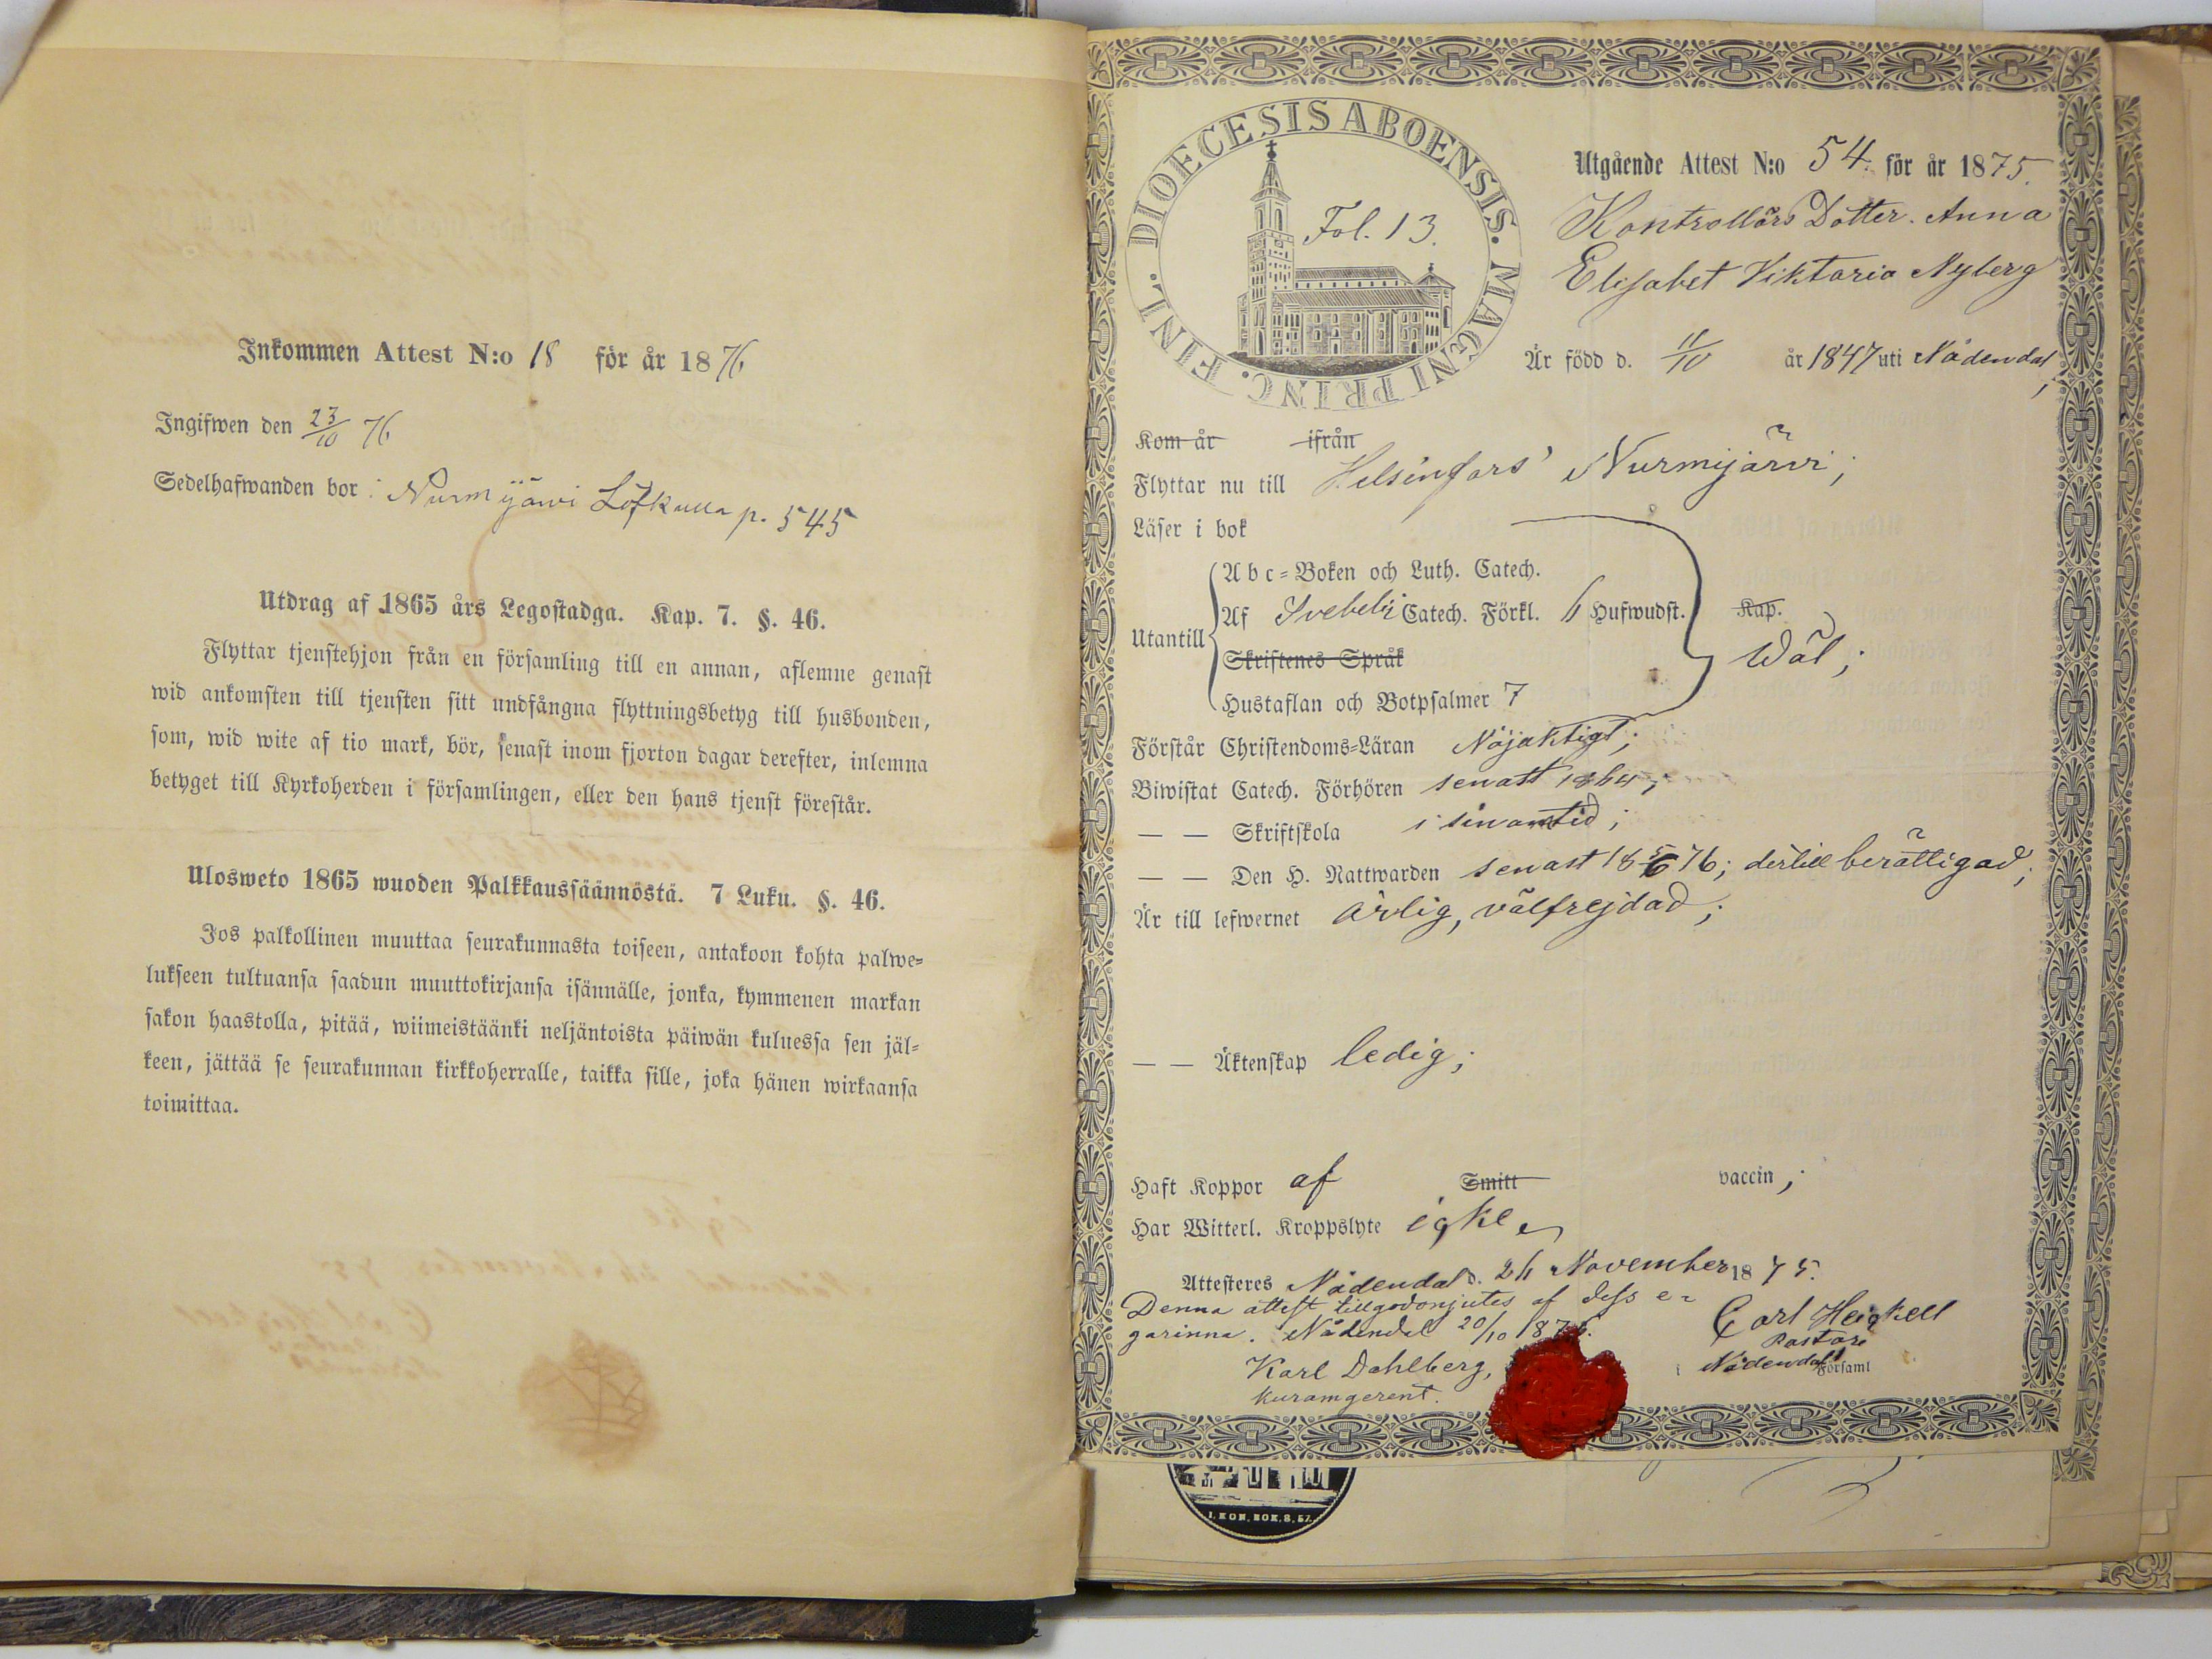 Inkommen Attest N:o 18 för år 1876
Ingifwen den 23/10 76
Sedelhafwanden bor i Nurmijärwi Löfkulla p. 545
Utdrag af 1865 års Legostadga. Kap. 7. §. 46.
Flyttar tjenstehjon från en församling till en annan, aflemne genast
wid ankomsten till tjensten sitt undfångna flyttningsbetyg till husbonden,
som, wid wite af tio mark, bör, senast inom fjorton dagar derefter, inlemna
betyget till Kyrkoherden i församlingen, eller den hans tjenst förestår.
Ulosweto 1865 wuoden Palkkaussäännöstä. 7 Luku. §. 46.
Jos palkollinen muuttaa seurakunnasta toiseen, antakoon kohta palwe-
lukseen tultuansa saadun muuttokirjansa isännälle, jonka, kymmenen markan
sakon haastolla, pitää, wiimeistäänki neljäntoista päiwän kuluessa sen jäl-
keen, jättää se seurakunnan kirkkoherralle, taikka sille, joka hänen wirkaansa
toimittaa.
DIOECESIS ABOENSIS. MAGNI PRINC. FINL.
Fol. 13.
Utgående Attest N:o 54. för år 1875.
Kontrollörs Dotter. Anna
Elisabet Viktoria Nyberg
Är född d. 11/10 år 1847 uti Nådendal;
Kom år ifrån
Flyttar nu till Helsingfors' Nurmijärvi;
Läser i bok
Utantill
Abc-Boken och Luth. Catech.
Af Svebelii Catech. Förkl. 6 Hufwudst. Kap.
Skriftenes Språk
Wäl;
Hustaflan och Botpsalmer 7
Förstår Christendoms-Läran Nöjaktigt;
Biwistat Catech. Förhören senast 1864;
— — Skriftskola i sinom tid;
— — Den H. Nattwarden senast 18 5/6 76; dertill berättigad;
Är till lefwernet ärlig, välfrejdad;
— — Äktenskap ledig;
Haft Koppor af Smitt vaccin;
Har Witterl. Kroppslyte icke
Attesteras Nådendal d. 24 November 1875.
Denna attest tillgodonjutes af dess e-
garinna. Nådendal 20/10 1876.
Karl Dahlberg,
kuramgerent.
Carl Heickell
Pastor
i Nådendals Församl
I. KON. BOK. 8, 57.